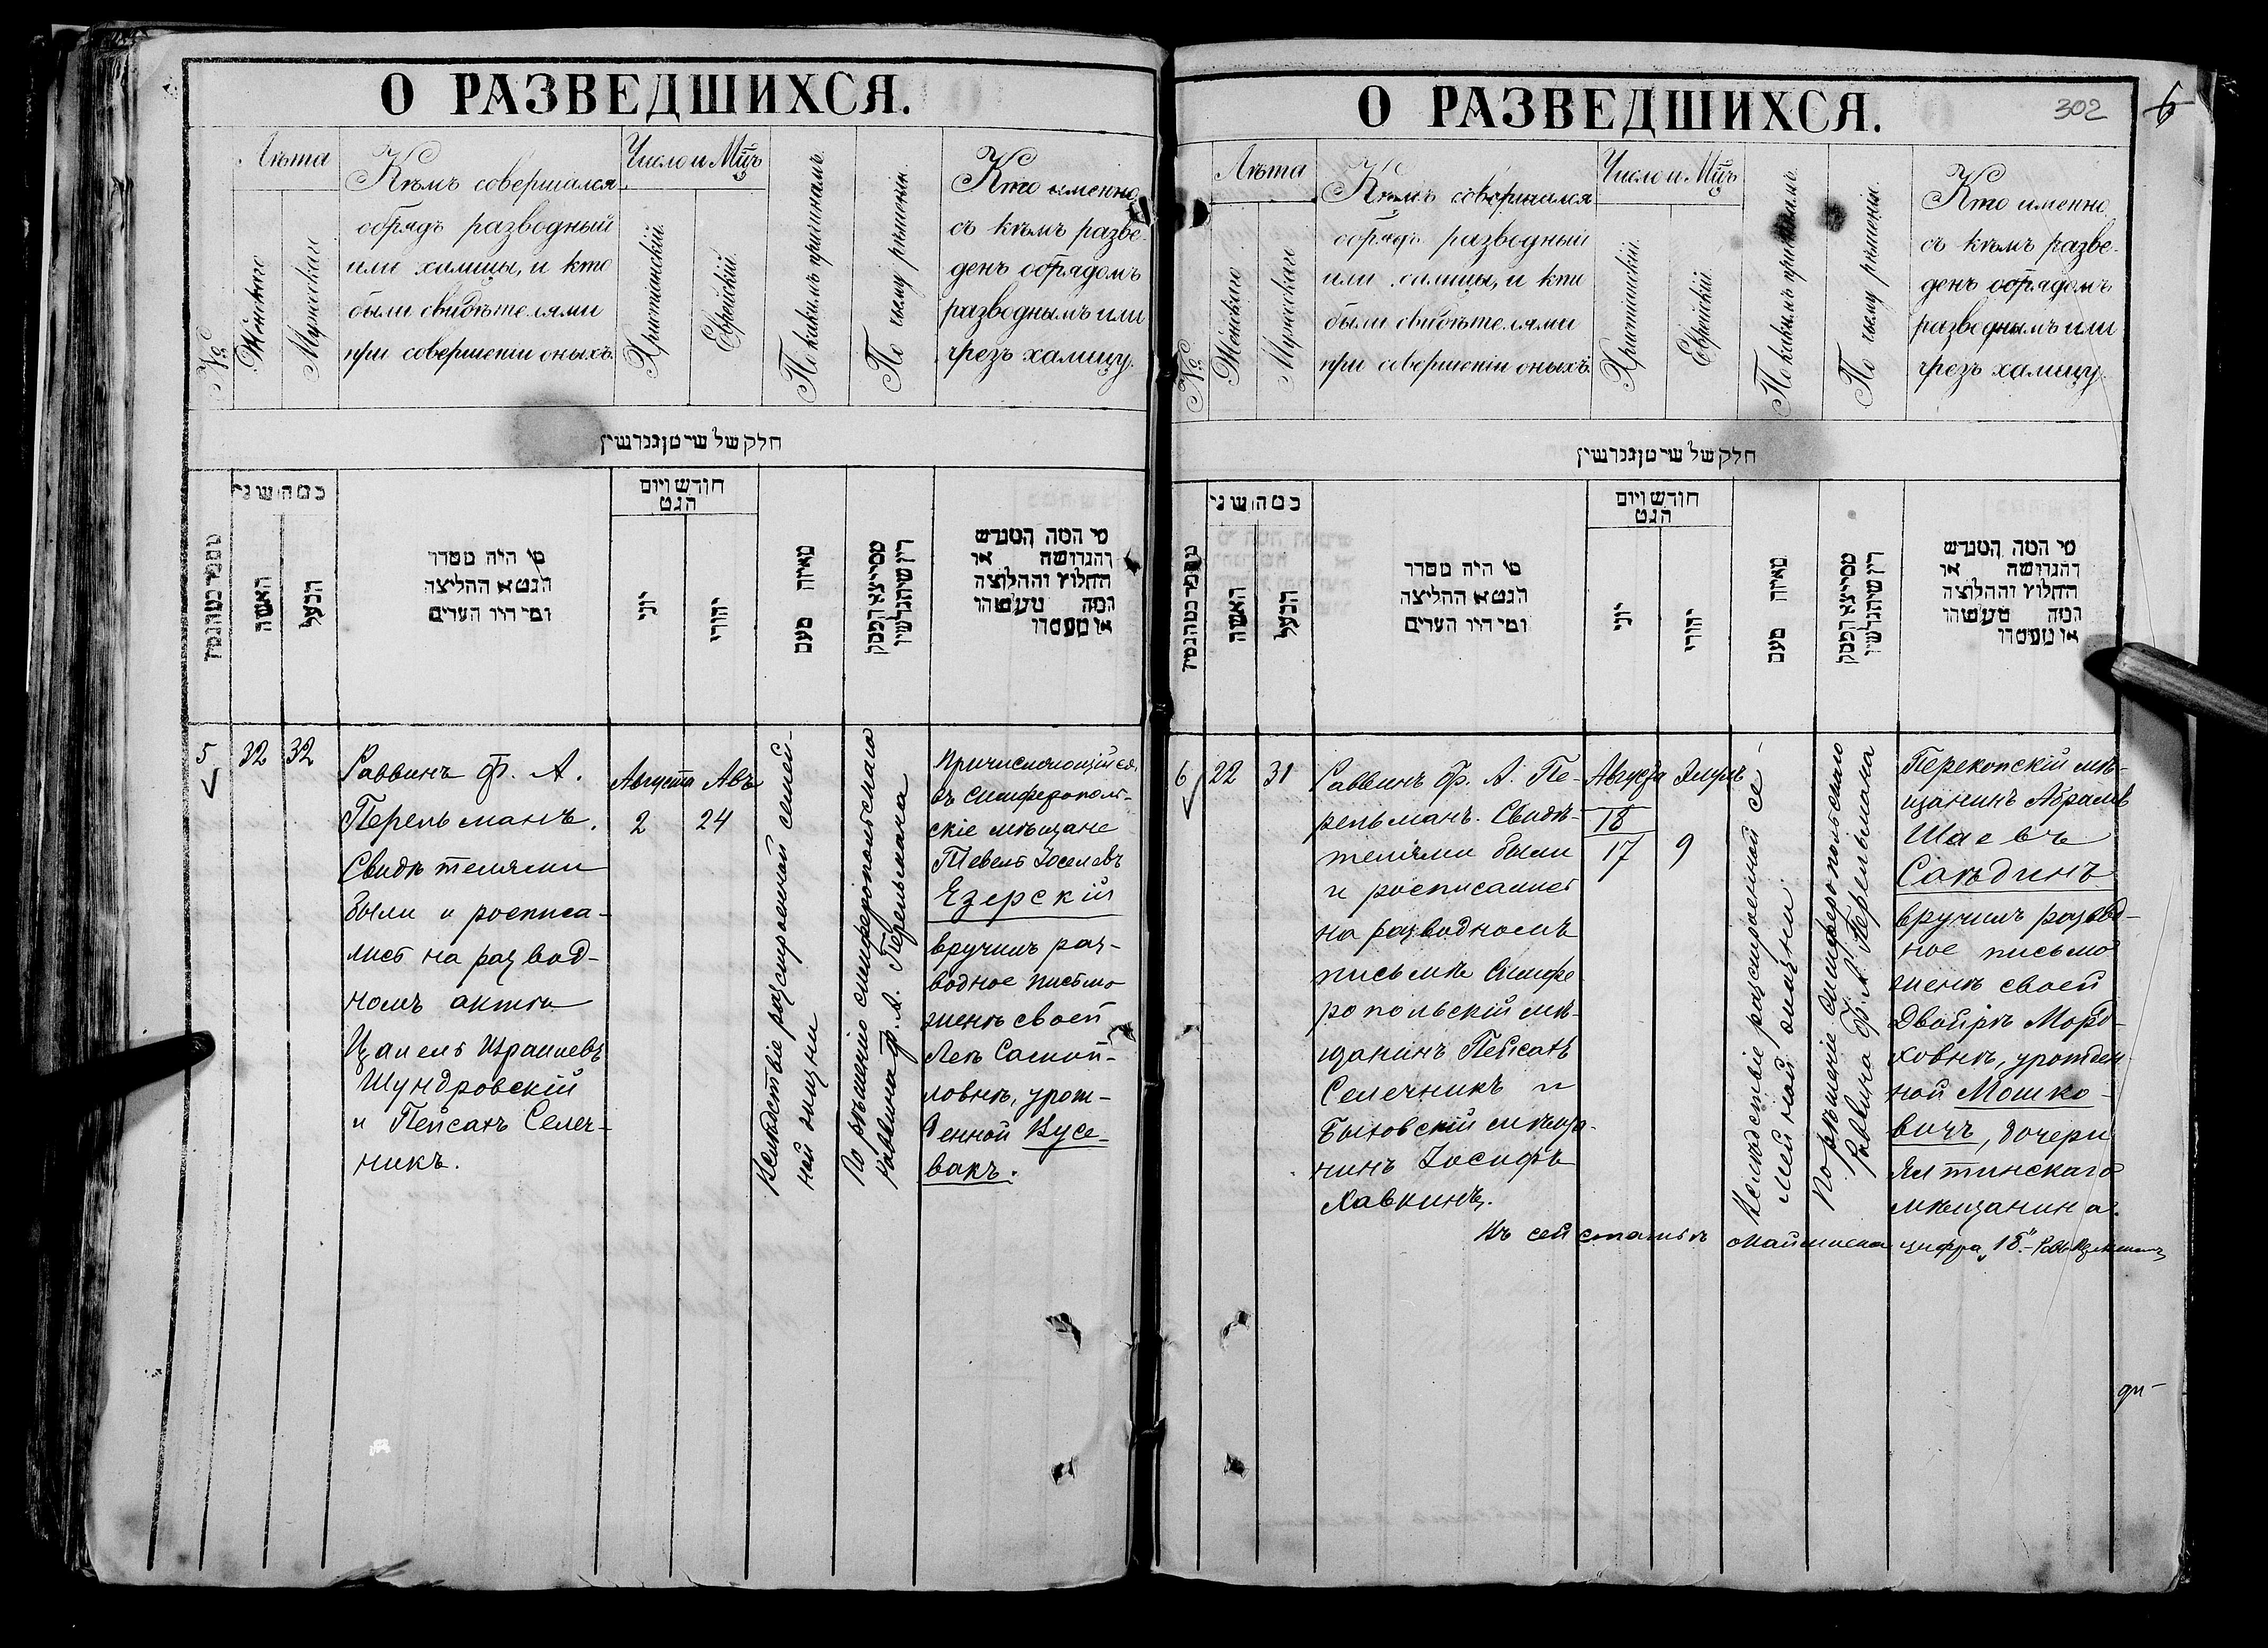 О РАЗВЕДШИХСЯ.
№
Лѣта
Женскаго
Мужскаго
Кѣмъ совершался
обрядъ разводный
или халицы, и кто
были свидѣтелями
при совершеніи оныхъ.
Число и Мцъ
Христіанскій.
Еврейскій.
По какимъ причинамъ.
По чьему рѣшенію.
Кто именно
съ кѣмъ разве-
денъ обрядомъ
разводнымъ или
чрезъ халицу.
חלק של שיטן גנרשין
כמה שני
האשה
הבעל
מי היה מסדר
הגט או החליצה
ומי היו העדים
חודש ויום
הגט
יוני
יהודי
מאיזה טעם
מי המה המגרש
והגרושה או
החלוץ והחלוצה
המה
5
32
32
Раввинъ Ф. А.
Перельманъ.
Свидѣтелями
были и росписа-
лись на развод-
номъ актѣ
Шундровскій
и Пейсахъ Селеч-
никъ.
Августа
2
Авъ
24
Вслѣдствіе разстроенной семей-
ной жизни
По рѣшенію симферопольскаго
раввина Ф. А. Перельмана
Причисляющійся
въ Симферополь-
скіе мѣщане
Тевель Іоселевъ
Езерскій
вручилъ раз-
водное письмо
женѣ своей
Леѣ Самой-
ловнѣ, урож-
денной Кусе-
вакъ.
О РАЗВЕДШИХСЯ.
302
6
№
Лѣта
Женскаго
Мужскаго
Кѣмъ совершался
обрядъ разводный
или халицы, и кто
были свидѣтелями
при совершеніи оныхъ.
Число и Мцъ
Христіанскій.
Еврейскій.
По какимъ причинамъ.
По чьему рѣшенію.
Кто именно
съ кѣмъ разве-
денъ обрядомъ
разводнымъ или
чрезъ халицу.
חלק של שיטן גנרשין
כמה שני
האשה
הבעל
מי היה מסדר
הגט או החליצה
ומי היו העדים
חודש ויום
הגט
יוני
יהודי
מאיזה טעם
מי המה המגרש
והגרושה או
החלוץ והחלוצה
המה
6
22
31
Раввинъ Ф. А. Пе-
рельманъ. Свидѣ-
телями были
и росписались
на разводномъ
письмѣ Симфе
ропольскій мѣ-
щанинъ Пейсахъ
Селечникъ и
Быховскій мѣща-
нинъ Іосифъ
Хавкинъ.
Августа
18
17
Элулъ
9
Вслѣдствіе разстроенной се-
мейной жизни.
По рѣшенію симферопольскаго
раввина Ф. А. Перельмана
Перекопскій мѣ-
щанинъ Абрамъ
Шаевъ
Сагъдинъ
вручилъ развод-
ное письмо
женѣ своей
Двойрѣ Морд-
ховнѣ, урожден-
ной Мошко-
вичъ, дочери
Ялтинскаго
мѣщанина.
Въ сей статьѣ цифра „18“